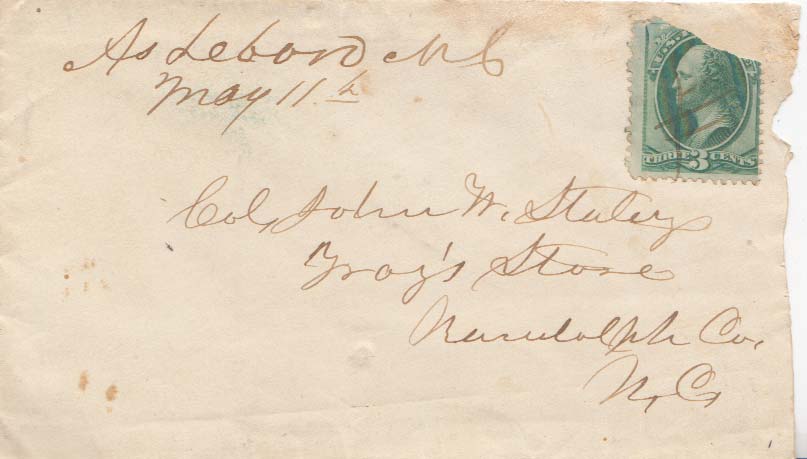 Asheboro N C
May 11th
U.S.
THREE 3 CENTS
Col, John W. Staley
Troy's Store
Randolph Co,
N, C,